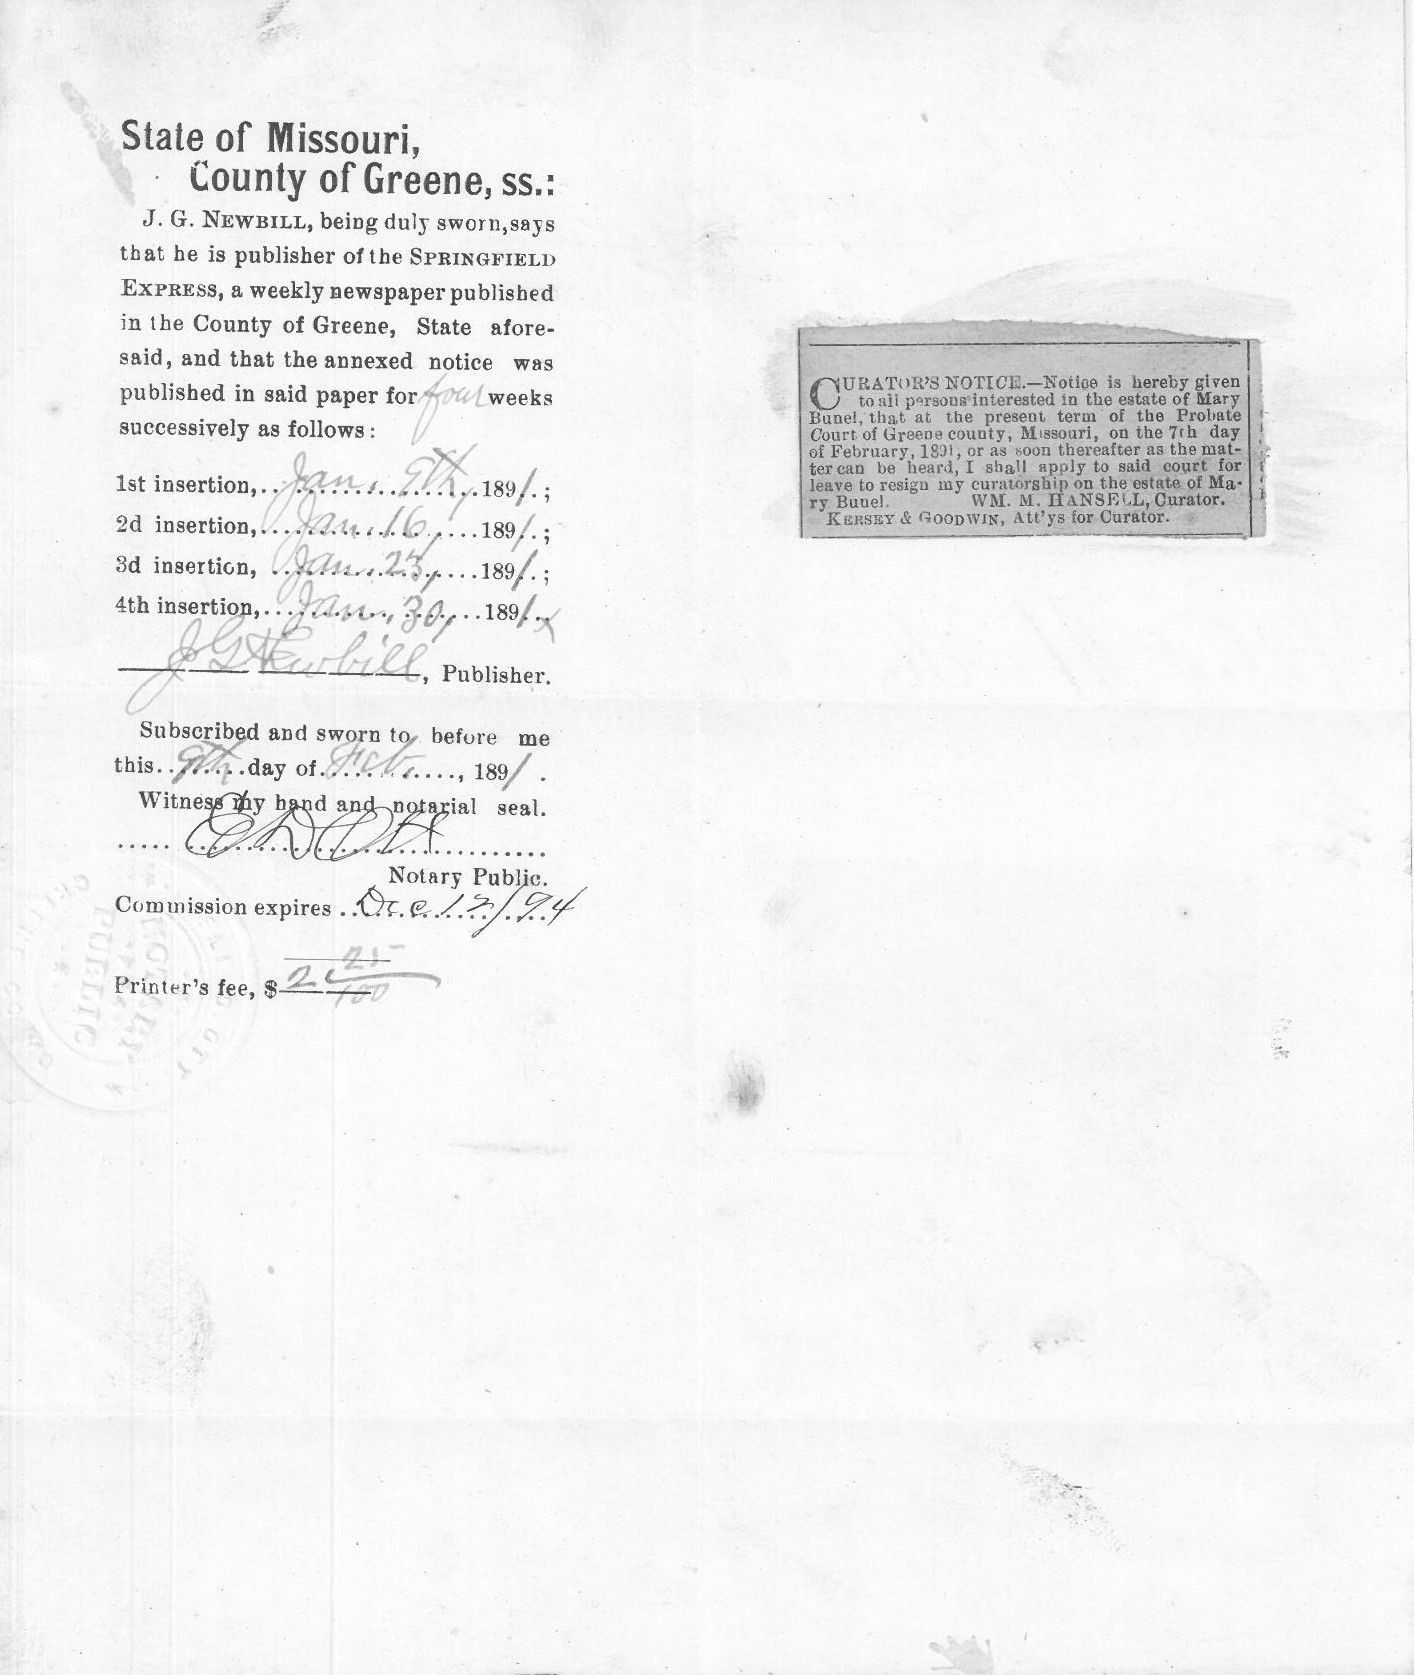 State of Missouri,
County of Greene, ss.:
J. G. NEWBILL, being duly sworn, says
that he is publisher of the SPRINGFIELD
EXPRESS, a weekly newspaper published
in the County of Greene, State afore-
said, and that the annexed notice was
published in said paper for four weeks
successively as follows:
1st insertion, Jan. 9th, 1891.;
2d insertion, Jan. 16, 1891.;
3d insertion, Jan. 23, 1891.;
4th insertion, Jan. 30, 1891..
J G Newbill, Publisher.
Subscribed and sworn to before me
this 9th day of Feb., 1891.
Witness my hand and notarial seal.
Notary Public.
Commission expires Dec. 12/94
Printer's fee, $2 25/100
NOTARY
PUBLIC
CURATOR'S NOTICE.—Notice is hereby given
to all persons interested in the estate of Mary
Bunel, that at the present term of the Probate
Court of Greene county, Missouri, on the 7th day
of February, 1891, or as soon thereafter as the mat-
ter can be heard, I shall apply to said court for
leave to resign my curatorship on the estate of Ma-
ry Bunel. WM. M. HANSELL, Curator.
KERSEY & GOODWIN, Att'ys for Curator.